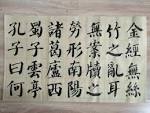 金經無絲
竹之亂耳
無案牘之
勞形南陽
諸葛廬西
蜀子雲亭
孔子曰何